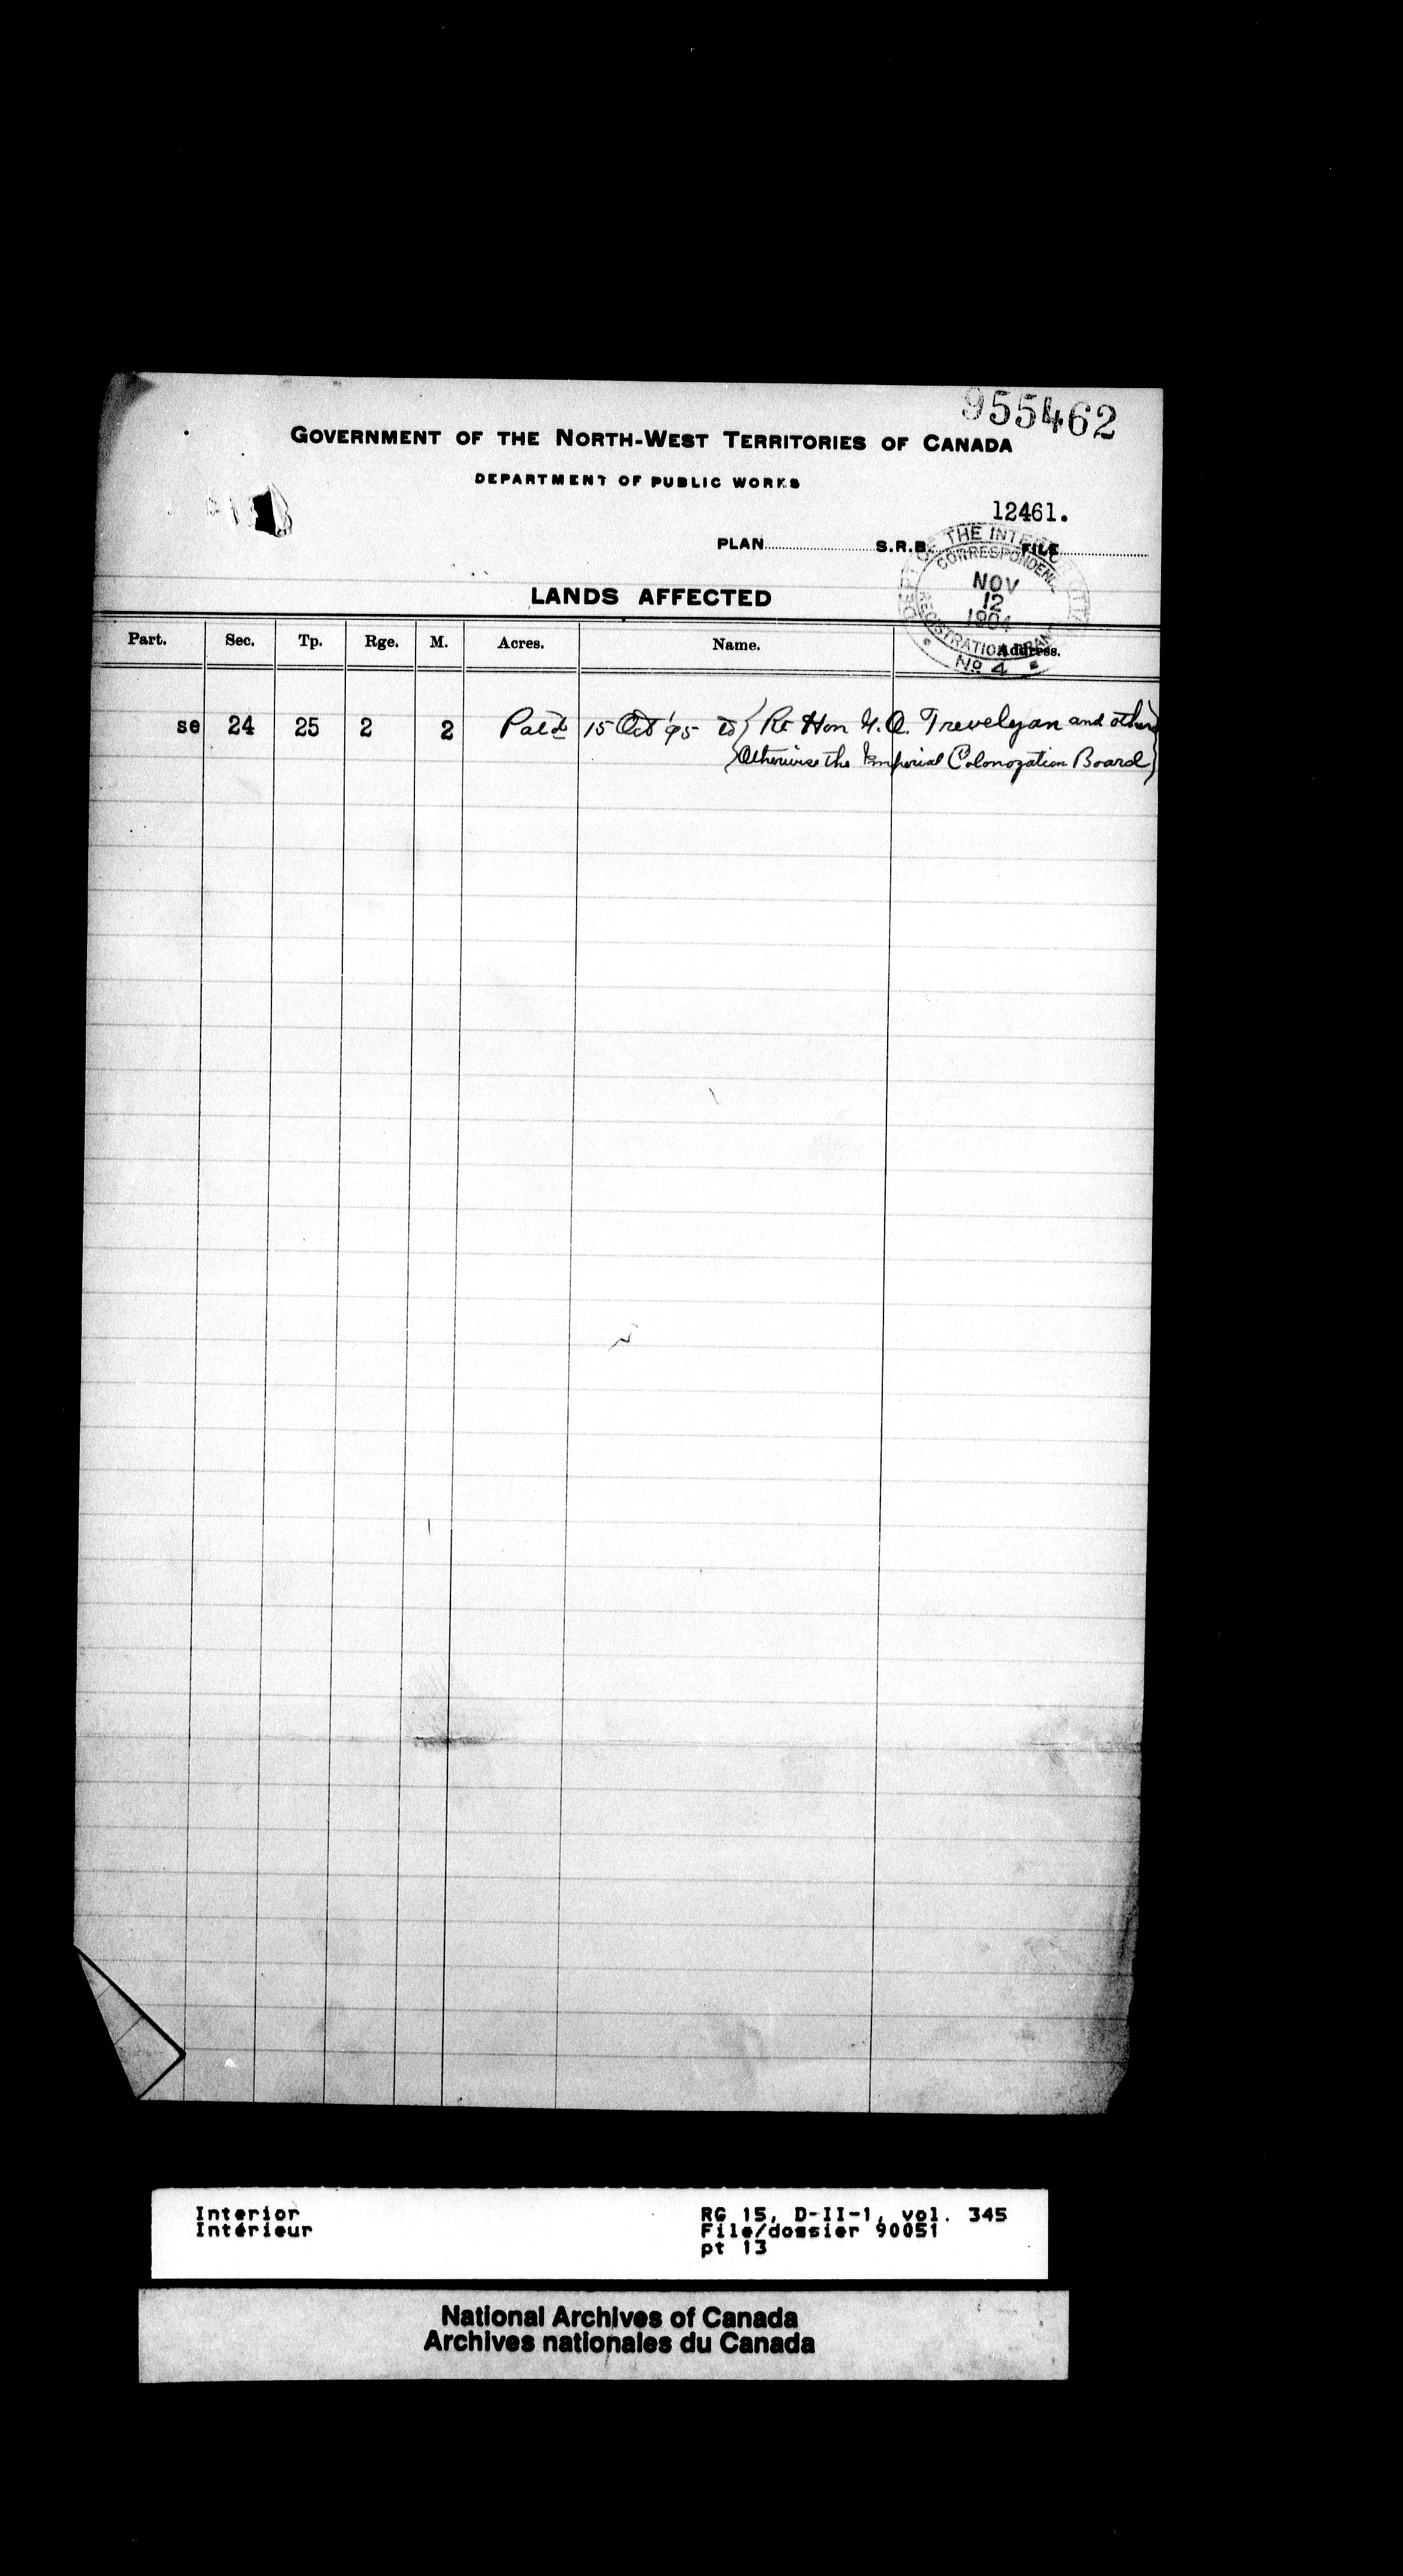 955462
GOVERNMENT OF THE NORTH-WEST TERRITORIES OF CANADA
DEPARTMENT OF PUBLIC WORKS
12461.
PLAN S.R.B. FILE
DEPT OF THE INTERIOR OTTAWA
CORRESPONDENCE
NOV
12
1904
REGISTRATION BRANCH
No 4
LANDS AFFECTED
Part. Sec. Tp. Rge. M. Acres. Name. Address.
se 24 25 2 2 Pat'd 15 Oct '95 to Rt Hon G.O. Trevelyan and others
Otherwise the Imperial Colonozation Board
Interior RG 15, D-II-1, vol. 345
Intérieur File/dossier 90051
pt 13
National Archives of Canada
Archives nationales du Canada